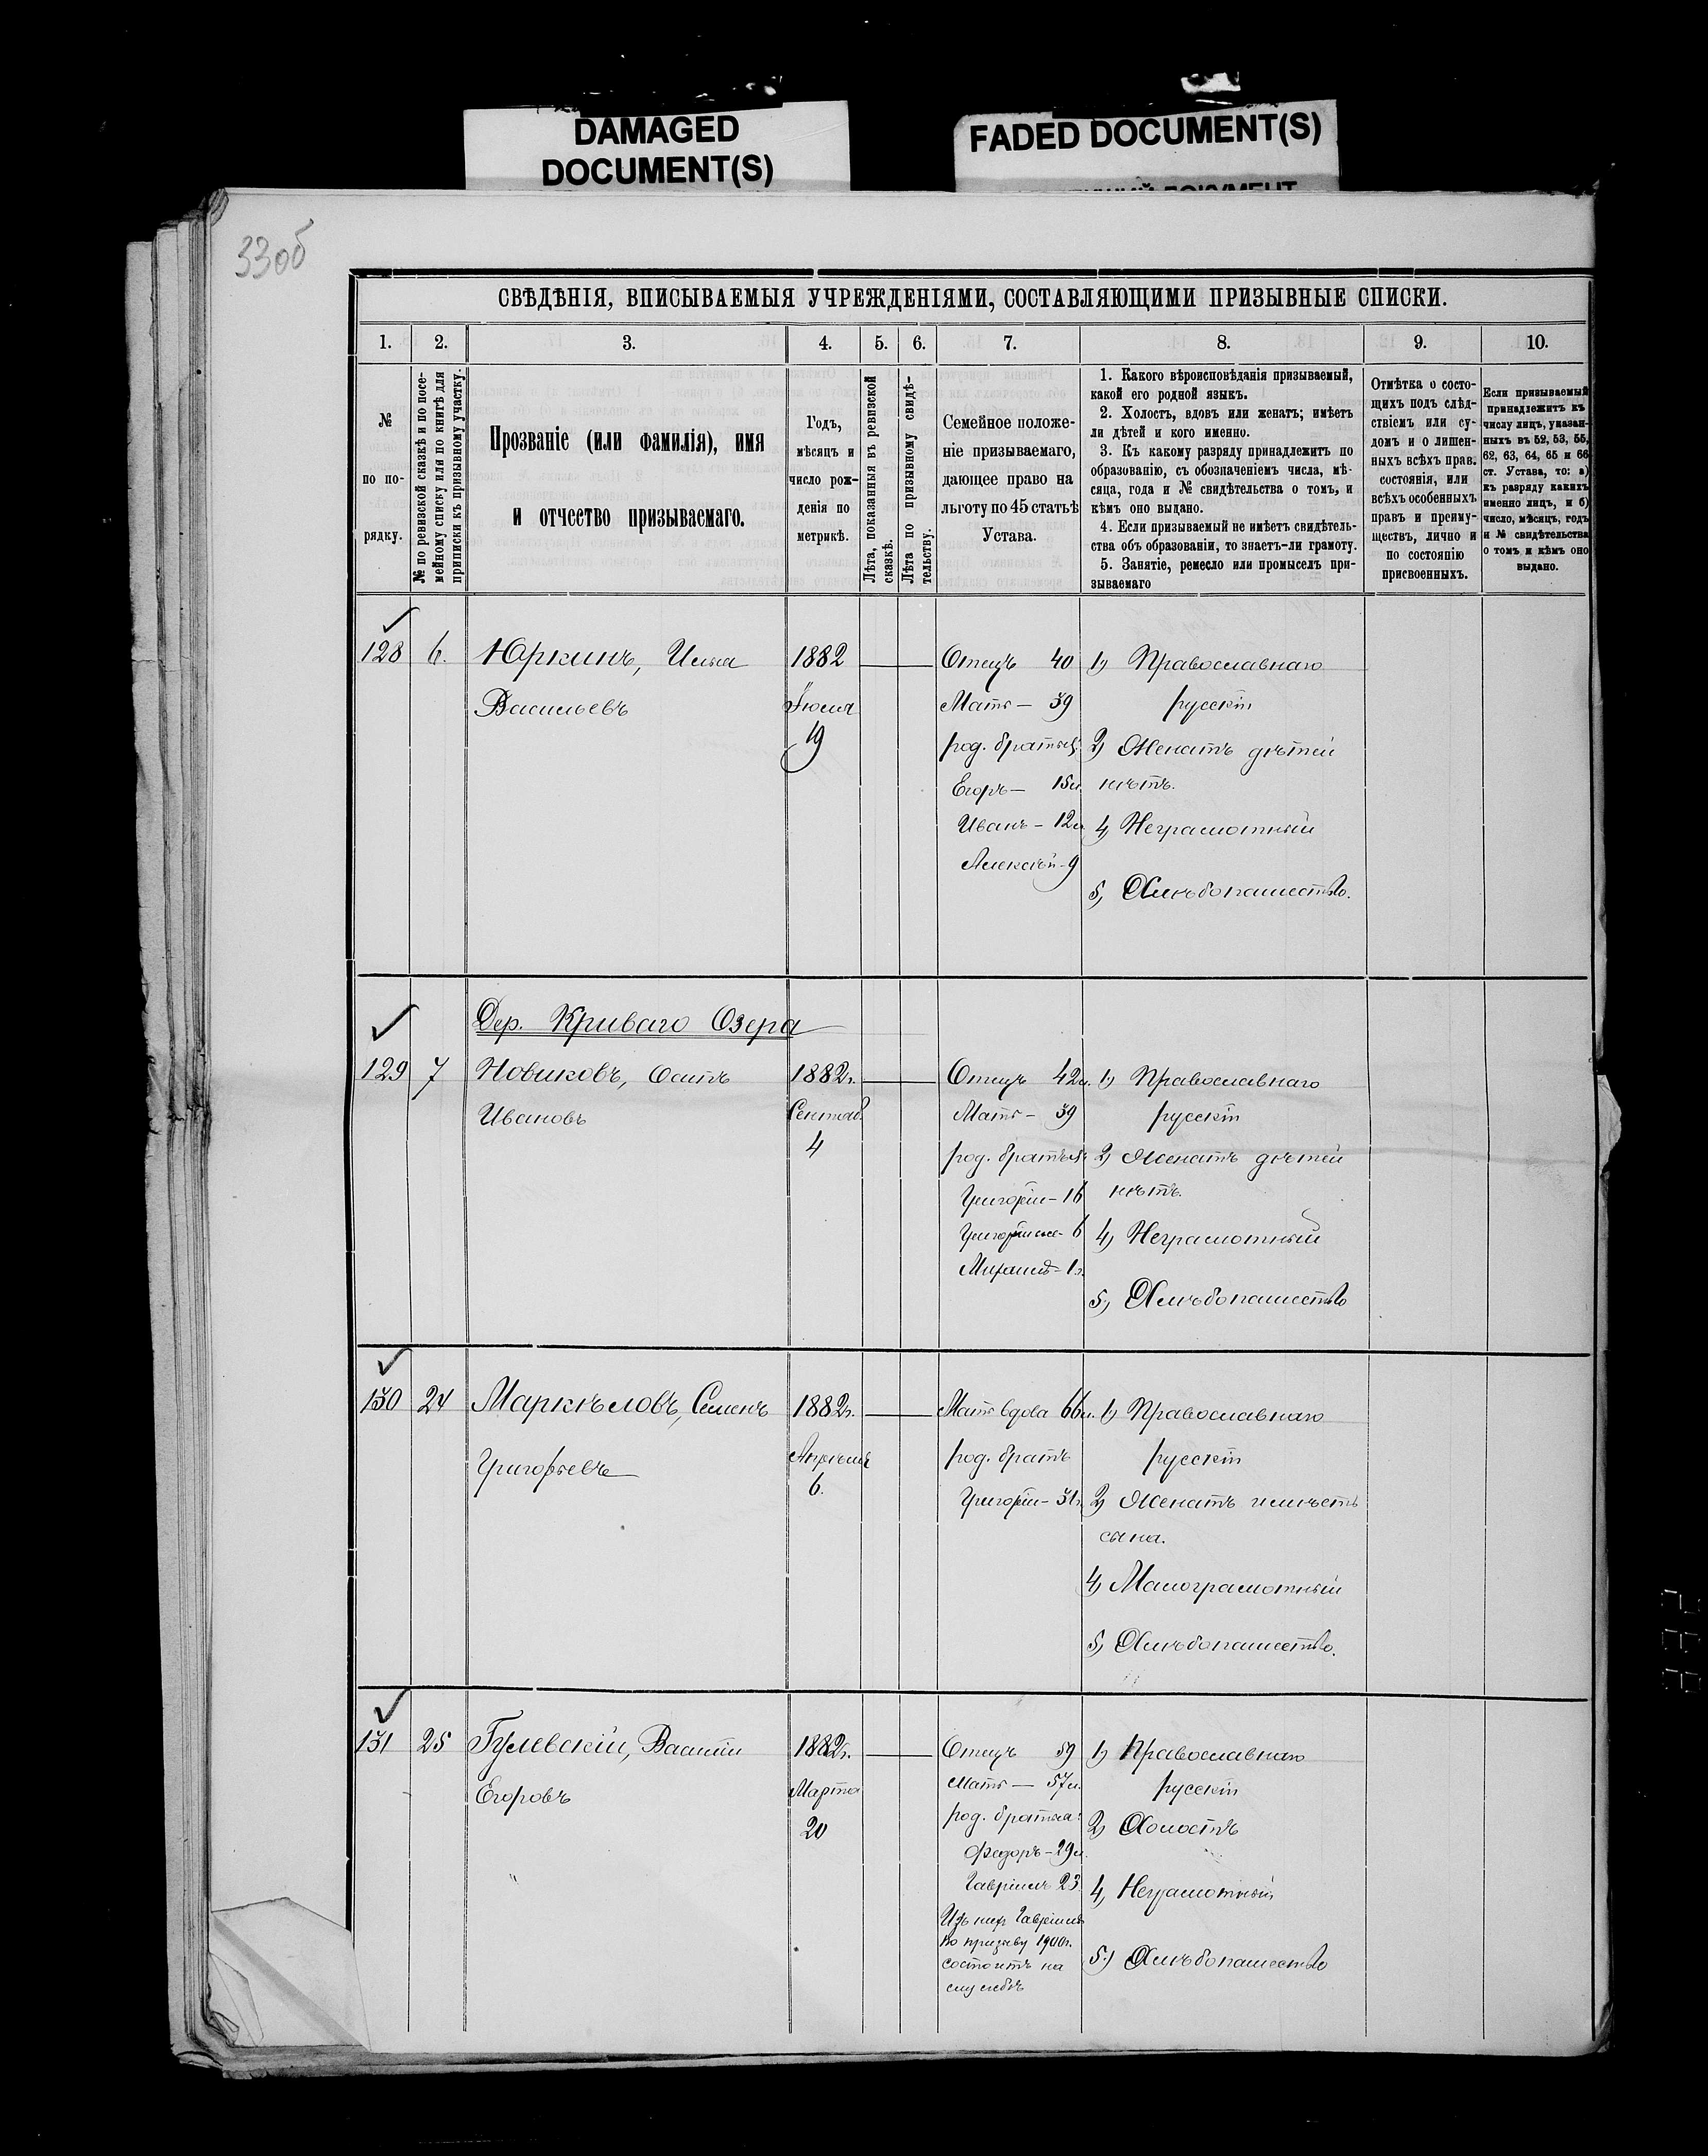 DAMAGED
DOCUMENT(S)
FADED DOCUMENT(S)
33об
СВѢДѢНІЯ, ВПИСЫВАЕМЫЯ УЧРЕЖДЕНІЯМИ, СОСТАВЛЯЮЩИМИ ПРИЗЫВНЫЕ СПИСКИ.
1. 2. 3. 4. 5. 6. 7. 8. 9. 10.
№
по по-
рядку.
№ по ревизской сказкѣ и по посе-
мейному списку или по книгѣ для
приписки къ призывному участку.
Прозваніе (или фамилія), имя
и отчество призываемаго.
Годъ,
мѣсяцъ и
число рож-
денія по
метрикѣ.
Лѣта, показанныя въ ревизской
сказкѣ.
Лѣта по призывному свидѣ-
тельству.
Семейное положе-
ніе призываемаго,
дающее право на
льготу по 45 статьѣ
Устава.
1. Какого вѣроисповѣданія призываемый,
какой его родной языкъ.
2. Холостъ, вдовъ или женатъ; имѣетъ
ли дѣтей и кого именно.
3. Къ какому разряду принадлежитъ по
образованію, съ обозначеніемъ числа, мѣ-
сяца, года и № свидѣтельства о томъ, и
кѣмъ оно выдано.
4. Если призываемый не имѣетъ свидѣтель-
ства объ образованіи, то знаетъ-ли грамоту.
5. Занятіе, ремесло или промыселъ при-
зываемаго
Отмѣтка о состо-
ящихъ подъ слѣд-
ствіемъ или су-
домъ и о лишен-
ныхъ всѣхъ прав.
состоянія, или
всѣхъ особенныхъ
правъ и преиму-
ществъ, лично и
по состоянію
присвоенныхъ.
Если призываемый
принадлежитъ къ
числу лицъ, указан-
ныхъ въ 52, 53, 55,
62, 63, 64, 65 и 66
ст. Устава, то: а)
къ разряду какихъ
именно лицъ, и б)
число, мѣсяцъ, годъ
и № свидѣтельства
о томъ и кѣмъ оно
выдано.
128 6. Юркинъ, Илья
Васильевъ
1882
Іюля
19
Отецъ 40
Мать — 39
род. братья:
Егоръ — 15л.
Иванъ — 12л.
Алексѣй - 9
1) Православнаго
русскій
2) Женатъ дѣтей
нѣтъ.
4) Неграмотный
5) Хлѣбопашество.
Дер. Криваго Озера
129 7 Новиковъ, Осипъ
Ивановъ
1882г.
Сентяб.
4
Отецъ 42л.
Мать — 39
род. братья:
Григорій — 16
Григорій же - 6
Михаилъ - 1г.
1) Православнаго
русскій
2) Женатъ дѣтей
нѣтъ.
4) Неграмотный
5) Хлѣбопашество
130 24 Маркѣловъ, Семенъ
Григорьевъ
1882г.
Апрѣля
6.
Мать вдова 66л.
род. братъ
Григорій - 31г.
1) Православнаго
русскій
2) Женатъ имѣетъ
сына.
4) Малограмотный
5) Хлѣбопашество.
131 25 Гулевскій, Василій
Егоровъ
1882г.
Марта
20
Отецъ 59
Мать — 57л.
род. братья:
Федоръ - 29л.
Гавріилъ 23
Изъ нихъ Гавріилъ
по призыву 1900г.
состоитъ на
службѣ
1) Православнаго
русскій
2) Холостъ
4) Неграмотный
5) Хлѣбопашество